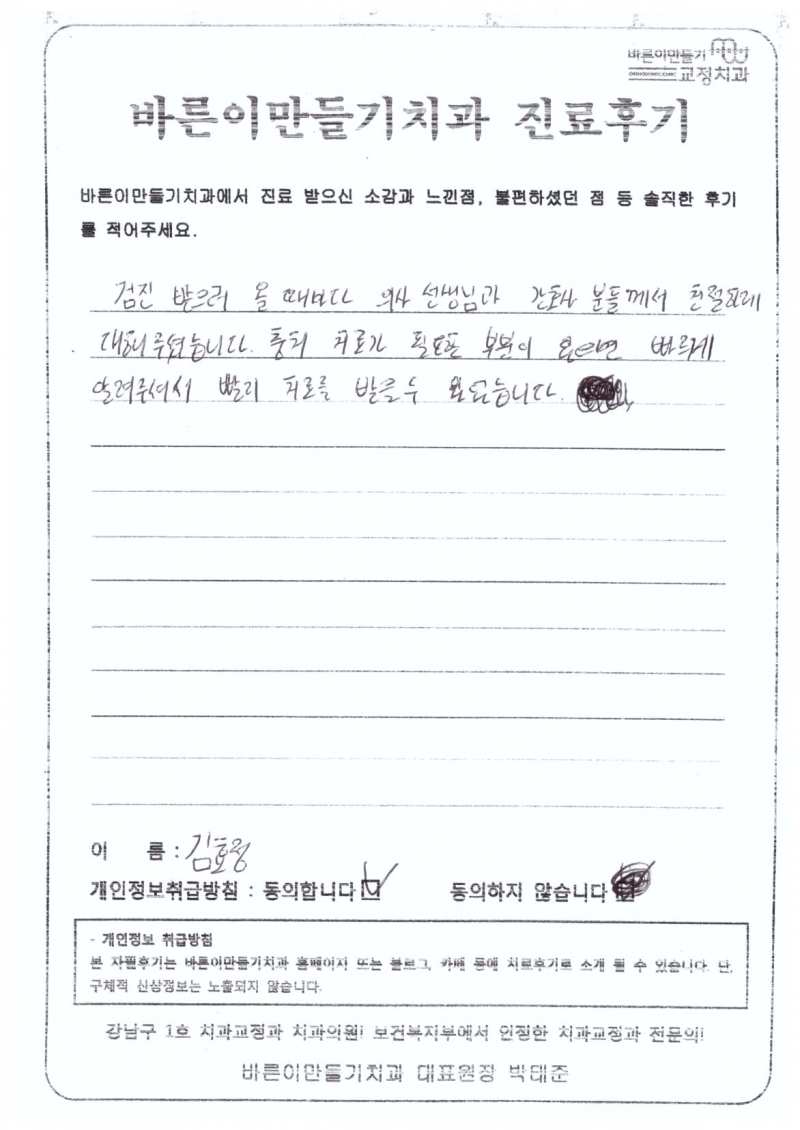 바른이만들기
ORTHODONTIC CLINIC 교정치과
바른이만들기치과 진료후기
바른이만들기치과에서 진료 받으신 소감과 느낀점, 불편하셨던 점 등 솔직한 후기
를 적어주세요.
검진 받으러 올 때마다 의사 선생님과 간호사 분들께서 친절하게
대해주셨습니다. 충치 치료가 필요한 부분이 있으면 빠르게
알려주셔서 빨리 치료를 받을 수 있었습니다.
이 름 : 김효정
개인정보취급방침 : 동의합니다 동의하지 않습니다
- 개인정보 취급방침
본 자필후기는 바른이만들기치과 홈페이지 또는 블로그, 카페 등에 치료후기로 소개 될 수 있습니다. 단,
구체적 신상정보는 노출되지 않습니다.
강남구 1호 치과교정과 치과의원! 보건복지부에서 인정한 치과교정과 전문의!
바른이만들기치과 대표원장 박태준